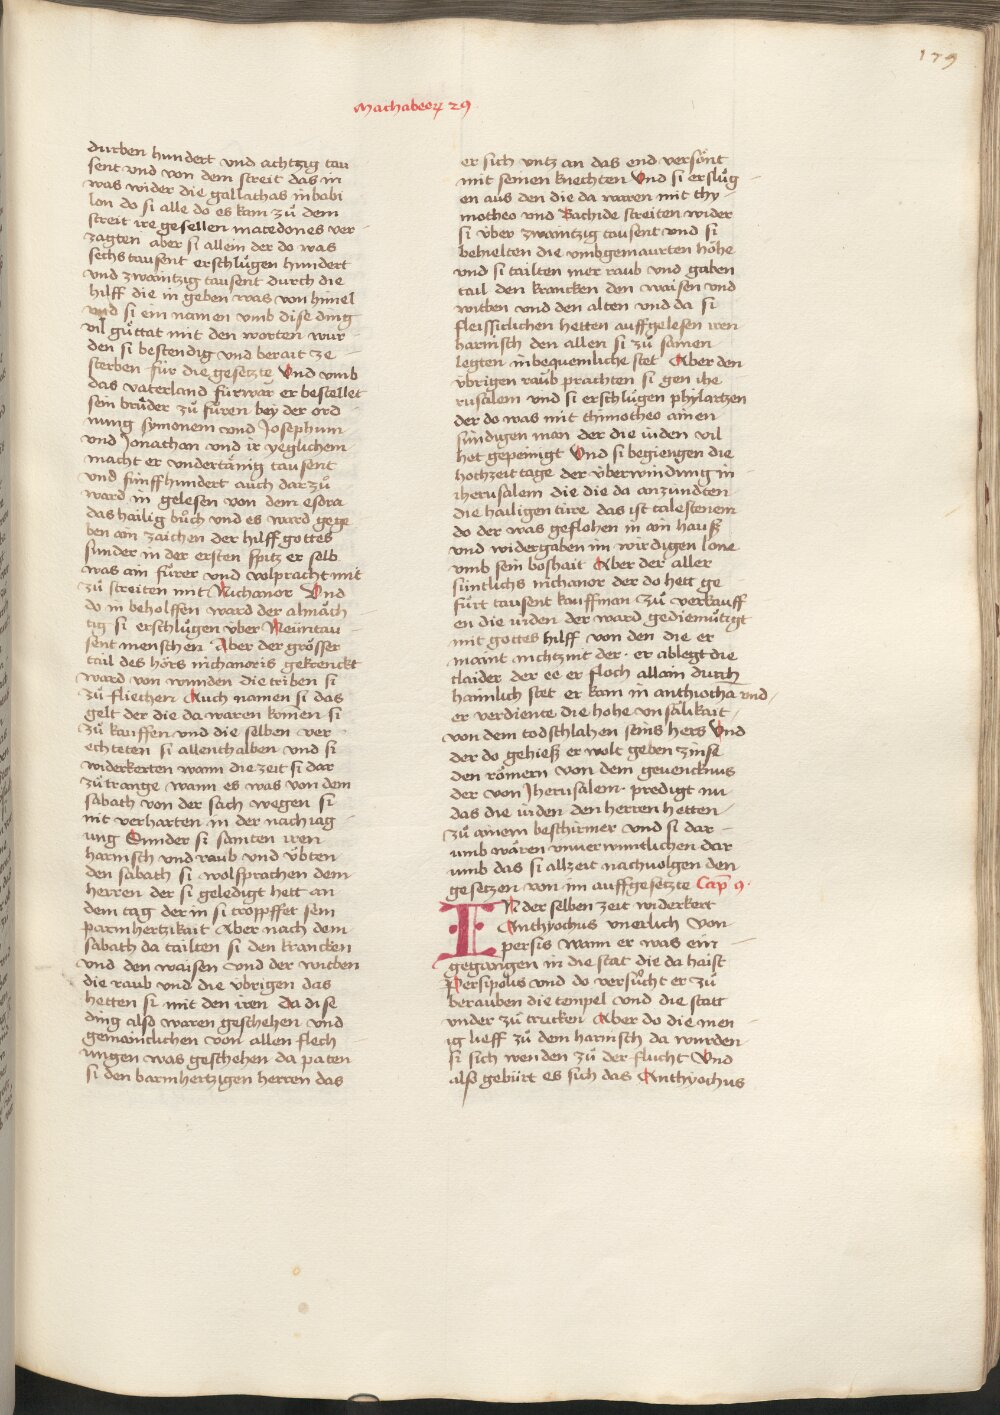 179
Machabeoꝝ 29
durben hundert vnd achtzig tau
sent vnd von dem streit das in
was wider die gallathas in babi
lon do si alle do es kam zů dem
streit ire gesellen macedones ver-
zagten aber si allein der do was
sechstausent erschlůgen hundert
vnd zwaintzig tausent durch die
hilff die in geben was von himel
vnd si ein namen vmb dise ding
vil gůttat mit den worten wur-
den si bestendig vnd berait ze
sterben für die gesetzte Vnd vmb
das vaterland fürwar er bestellet
sein brůder zů fůren bey der ord
nung symonem vnd Josephum
vnd Jonathan vnd ir yeglichem
macht er vndertänig tausent
vnd fünffhundert auch dar zů
ward in gelesen von dem esdra
das hailig bůch vnd es ward gege
ben ain zaichen der hilff gottes
sunder in der ersten spitz er selb
was ain fürer vnd volpracht mit
zů streiten mit Nichanor Vnd
do in beholffen ward der almäch
tig si erschlůgen über Neüntau
sent menschen Aber der grösser
tail des hörs nichanoris gekrenckt
ward von wunden die triben si
zů fliechen Auch namen si das
gelt der die da waren komen si
zů kauffen vnd die selben ver-
echteten si allenthalben vnd si
widerkerten wann die zeit si dar
zů trange wann es was von dem
sabath von der sach wegen si
nit verharten in der nachiag
ung Sunder si samten iren
harnisch vnd raub vnd übten
den sabath si wolsprachen dem
herren der si geledigt hett an
dem tag der in si tropffet sein
parmhertzikait Aber nach dem
sabath da tailten si den krancken
vnd den waisen vnd der witben
die raub vnd die übrigen das
hetten si mit den iren da dise
ding also waren geschehen vnd
gemaintlichen von allen flech
ungen was geschehen da paten
si den barmhertzigen herren das
er sich vntz an das end versönt
mit seinen knechten Vnd si erslůg
en aus den die da waren mit thy-
motheo vnd Bachide streiten wider
si über zwaintzig tausent vnd si
behielten die vmbgemaurten höhe
vnd si tailten mer raub vnd gaben
tail den krancken den waisen vnd
witben vnd den alten vnd da si
fleissiclichen hetten auffgelesen iren
harnisch den allen si zů samen
legten in bequemliche stet Aber den
übrigen raub prachten si gen ihe
rusalem vnd si erschlůgen phylartzen
der do was mit thimotheo ainen
sündigen man der die iuden vil
het gepeinigt Vnd si begiengen die
hochzeit tage der überwindung in
iherusalem die die da anzündten
die hailigen türe das ist calestenem
do der was geflohen in ain hauß
vnd widergaben im wirdigen lone
vmb sein boshait Aber der aller
süntlichs nichanor der do hett ge
fürt tausent kauffman zů verkauff
en die iuden der ward gediemůtigt
mit gottes hilff von den die er
maint nichtz mit der er ablegt die
claider der ee er floch allain durch
haimlich stet er kam in anthiocha vnd
er verdiente die hohe vnsälikait
von dem todschlahen seins hers Vnd
der do gehieß er wolt geben zinse
den römern von dem geuencknus
der von Jherusalem predigt nu
das die iuden den herren hetten
zů ainem beschirmer vnd si dar-
umb wären vnuerwuntlichen dar-
umb das si allzeit nachuolgen den
gesetzen von im auffgesetzte Cap̄ 9
IN der selben zeit widerkert
Anthyochus vnerlich von
persis wann er was ein
gegangen in die stat die da haist
Persipolus vnd do versůcht er zů
berauben die tempel vnd die statt
vnder zů trucken Aber do die men-
ig lieff zů dem harnisch da wurden
si sich wenden zů der flucht Vnd
also gebürt es sich das Anthyochus